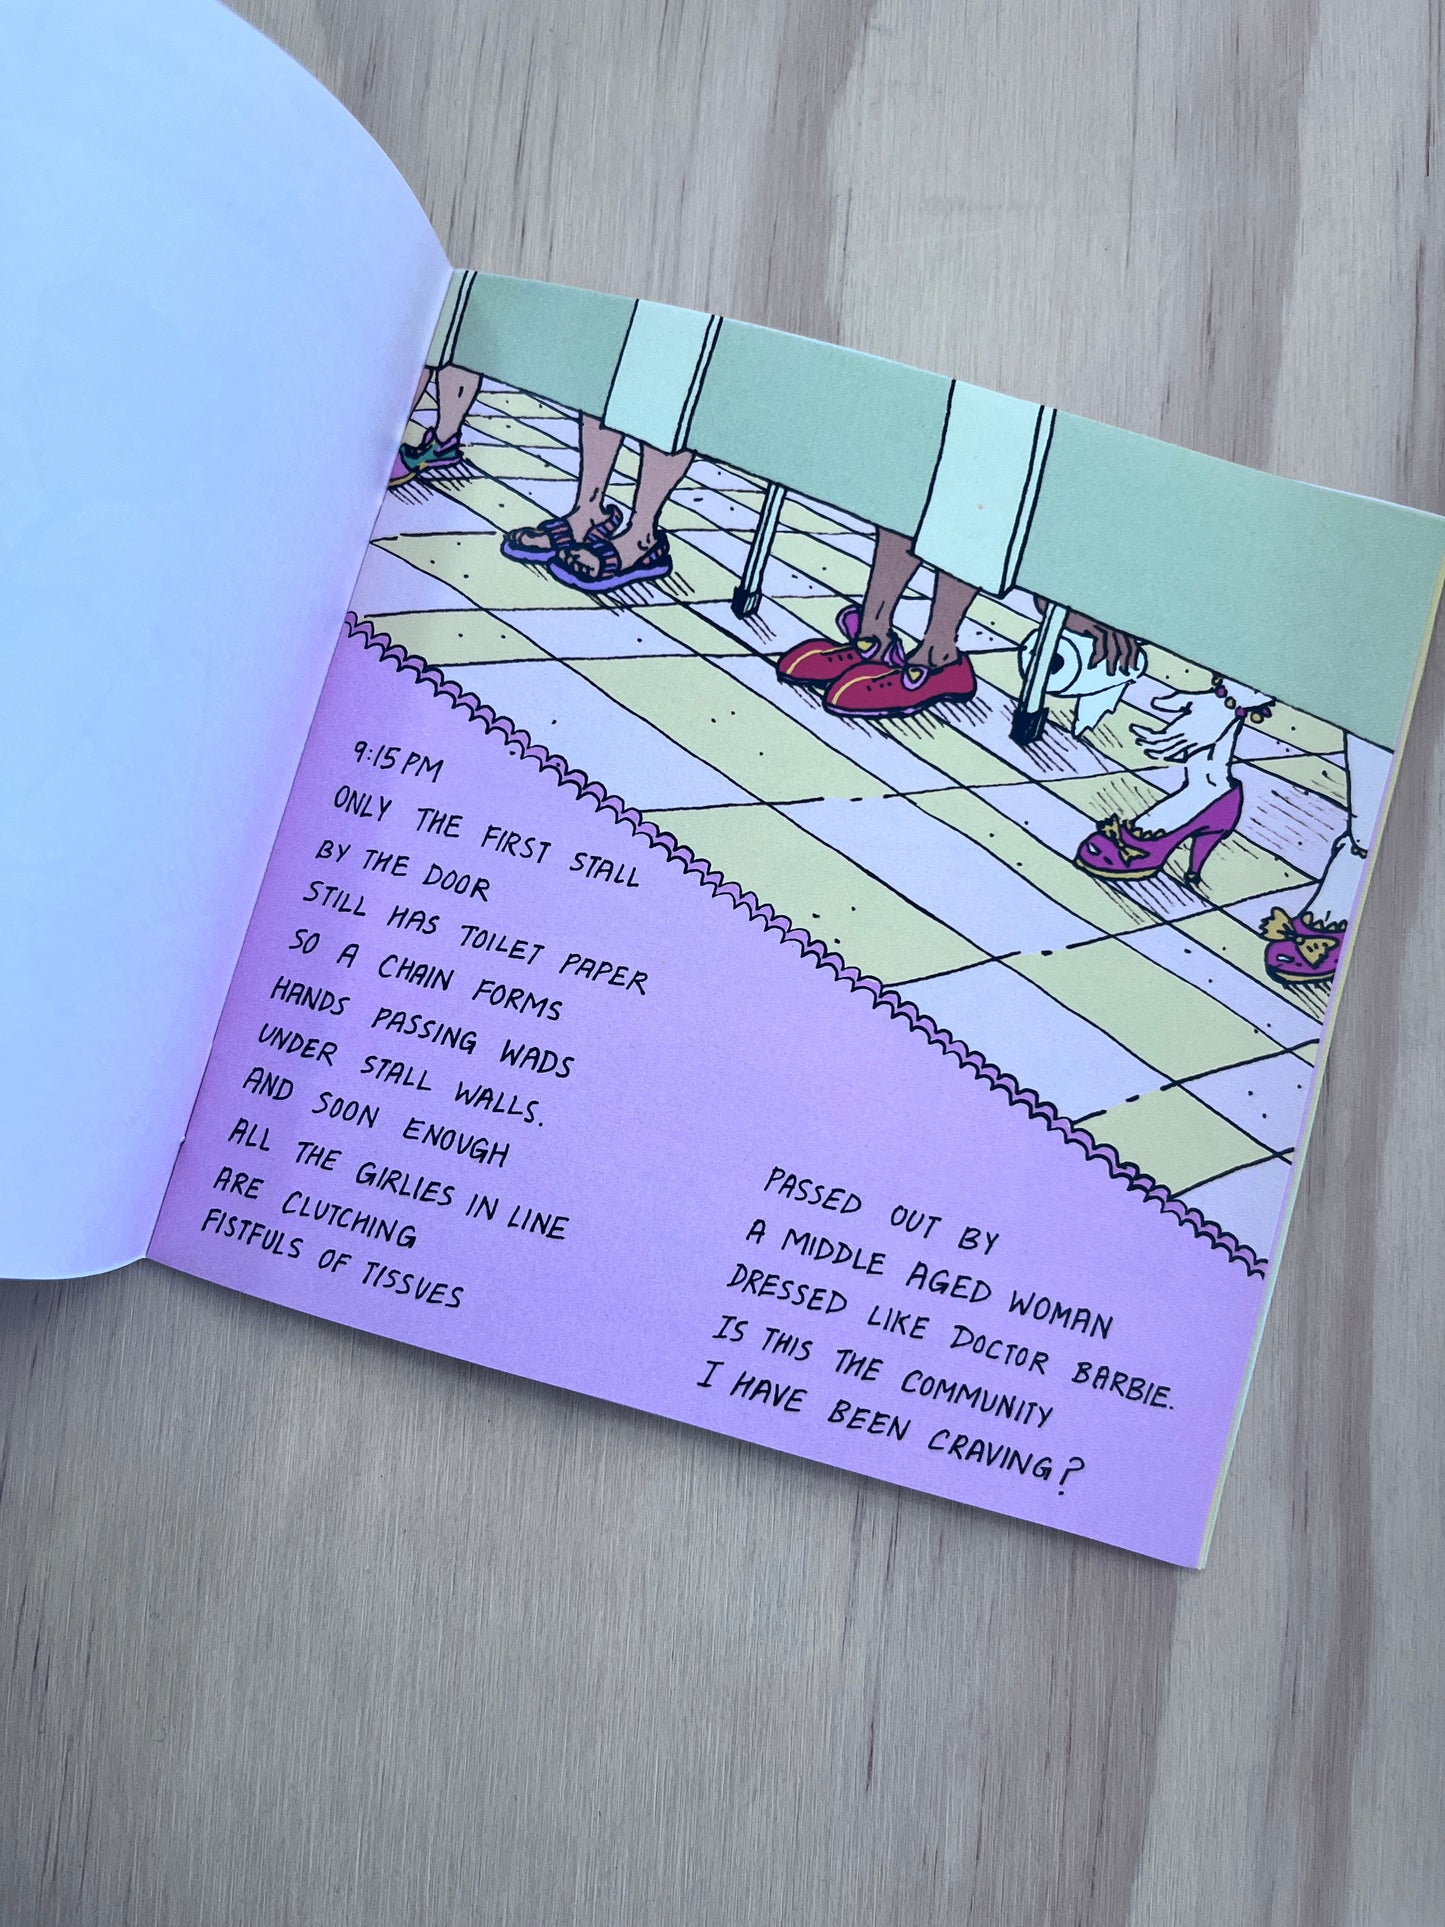 9:15 PM
ONLY THE FIRST STALL
BY THE DOOR
STILL HAS TOILET PAPER
SO A CHAIN FORMS
HANDS PASSING WADS
UNDER STALL WALLS.
AND SOON ENOUGH
ALL THE GIRLIES IN LINE
ARE CLUTCHING
FISTFULS OF TISSUES
PASSED OUT BY
A MIDDLE AGED WOMAN
DRESSED LIKE DOCTOR BARBIE.
IS THIS THE COMMUNITY
I HAVE BEEN CRAVING?